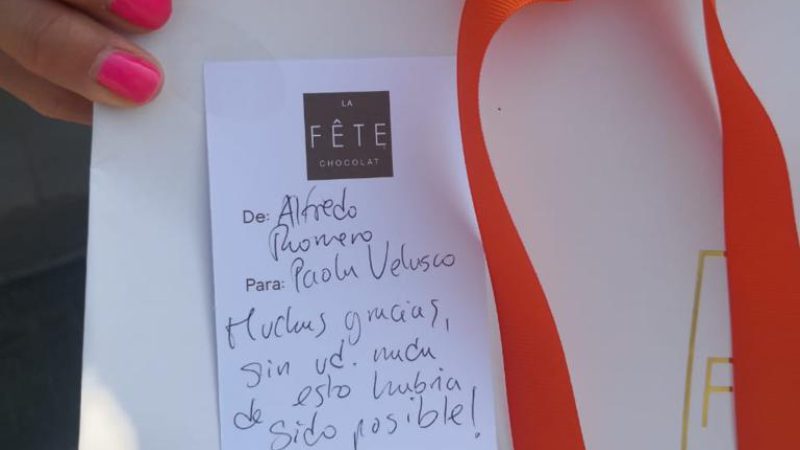 LA
FÊTE
CHOCOLAT
De: Alfredo
Romero
Para: Paola Velasco
Muchas gracias,
sin ud. nada
de esto habria
sido posible!
F